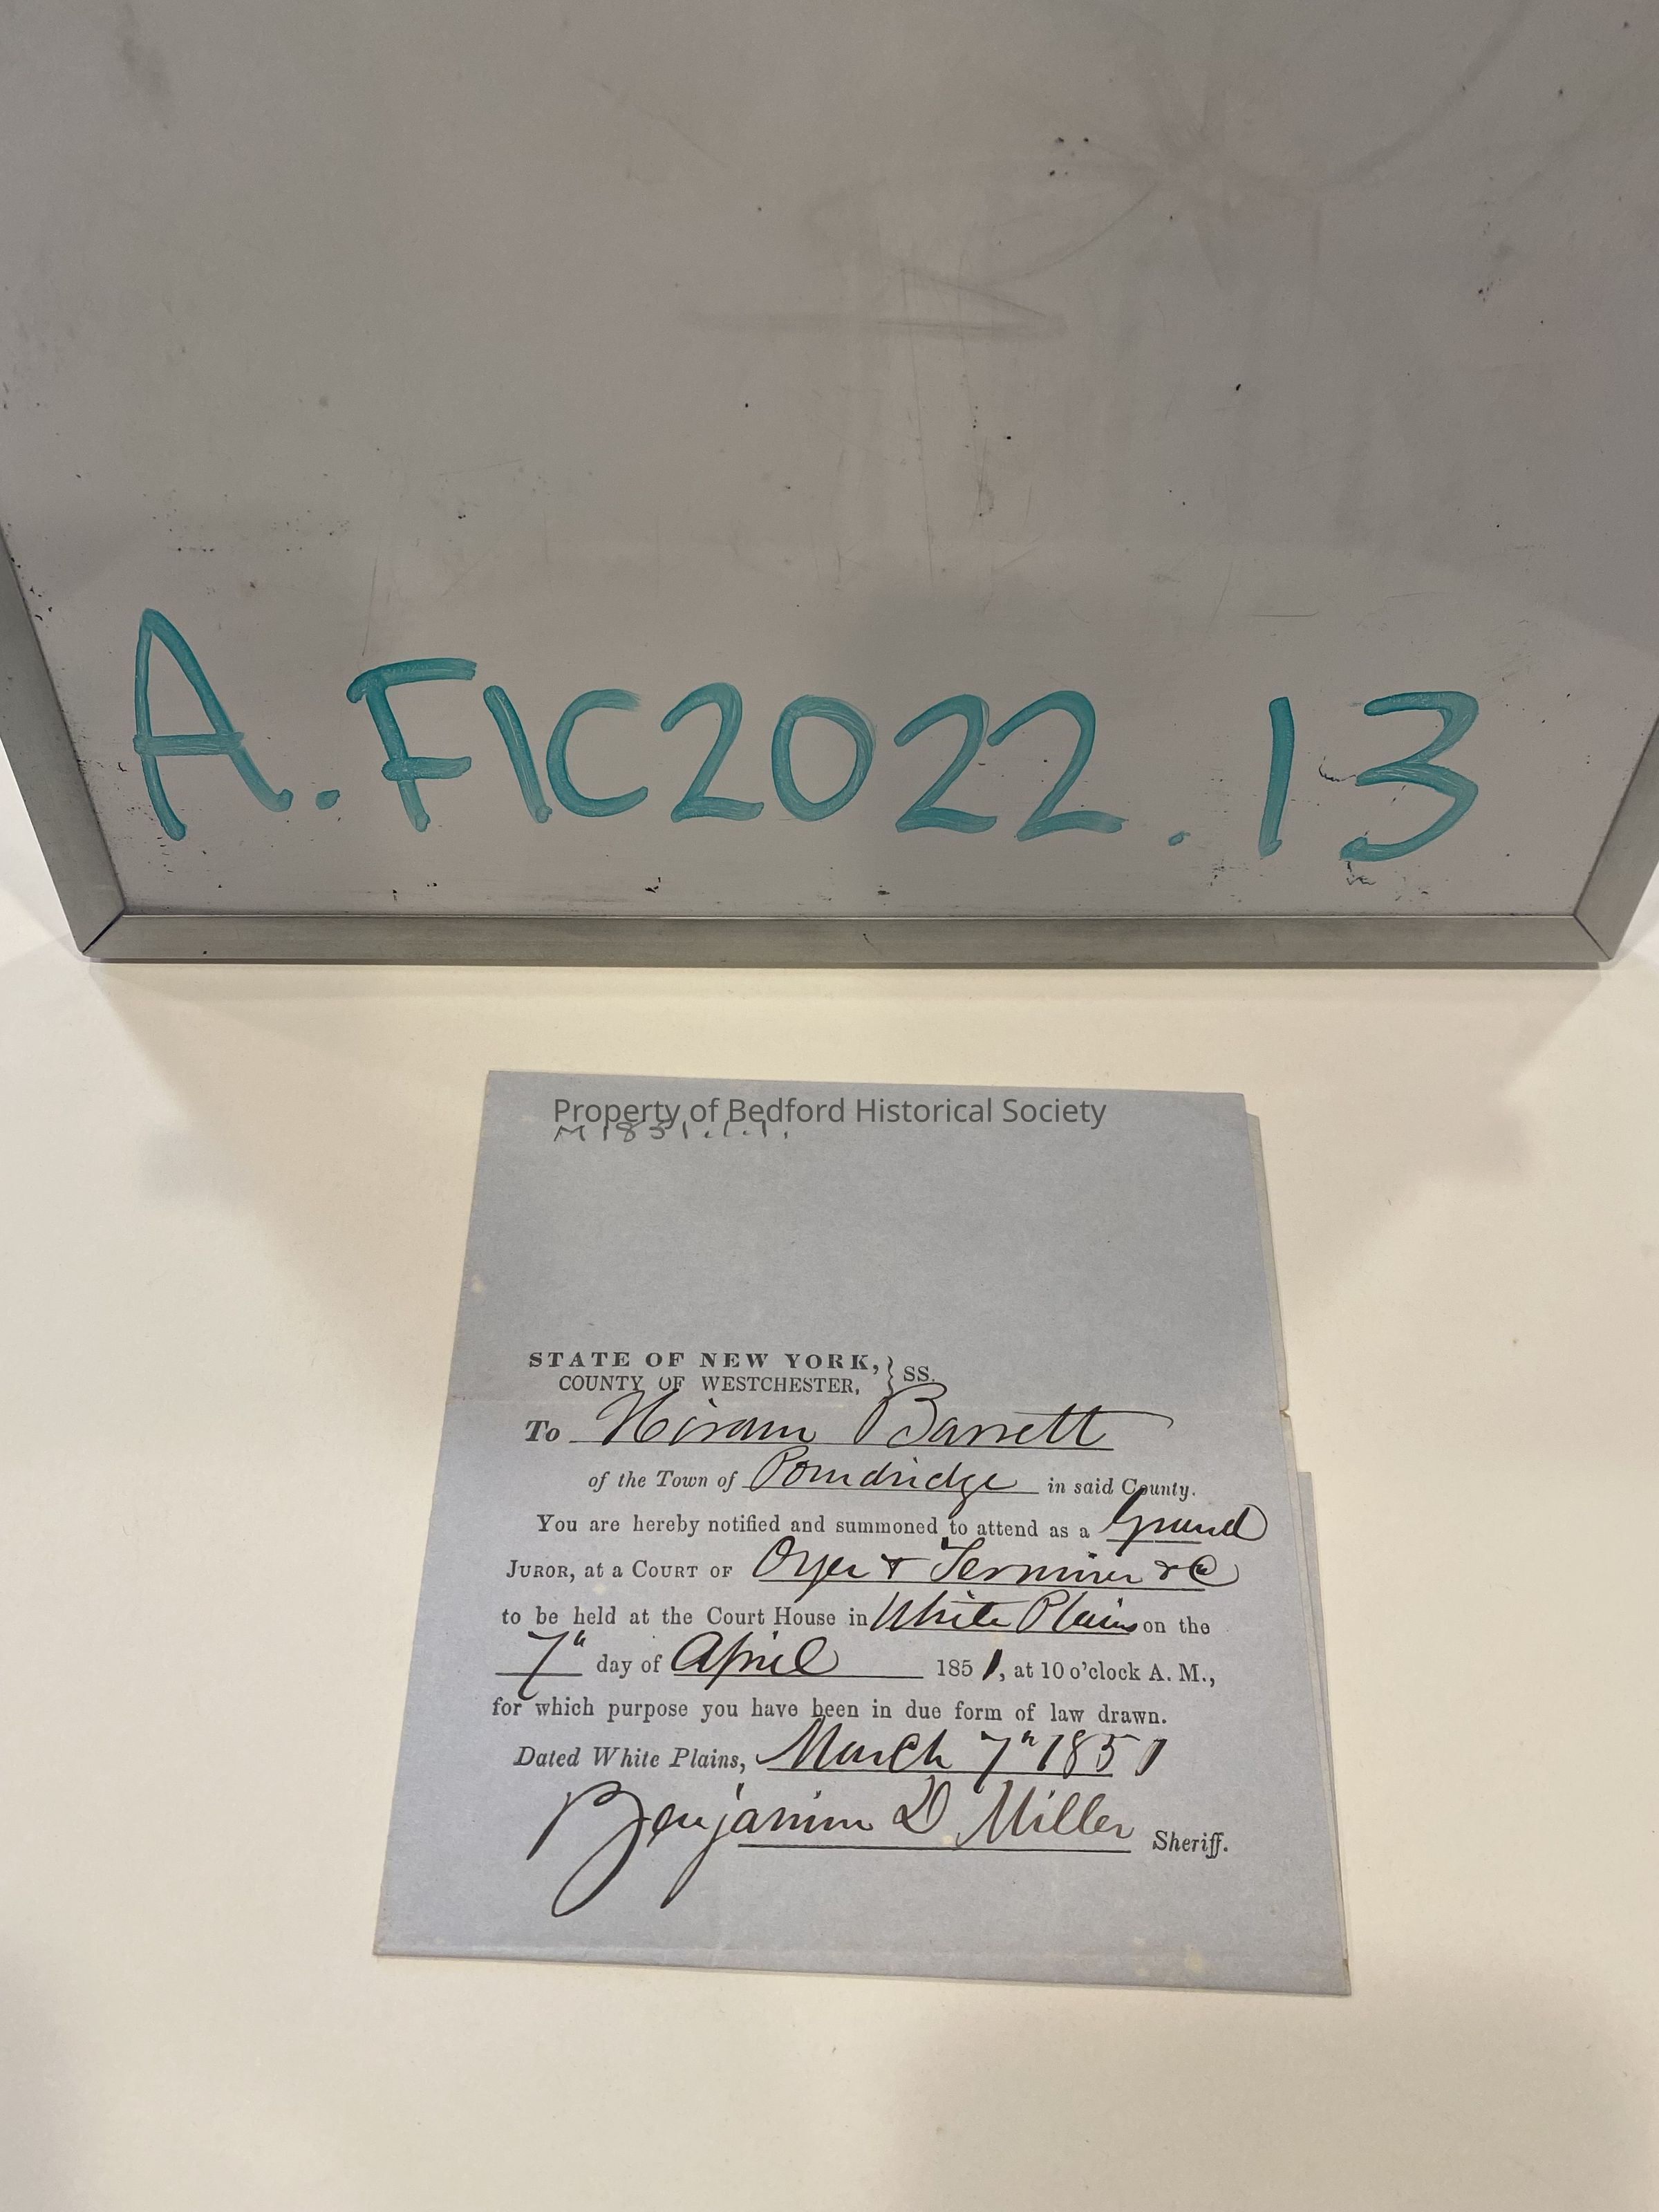 A.FIC2022.13
Property of Bedford Historical Society
M1851.1.1.
STATE OF NEW YORK, } SS.
COUNTY OF WESTCHESTER,
To Hiram Barrett
of the Town of Poundridge in said County.
You are hereby notified and summoned to attend as a Grand
JUROR, at a COURT OF Oyer & Terminer &C
to be held at the Court House in White Plains on the
7" day of April 1851, at 10 o'clock A. M.,
for which purpose you have been in due form of law drawn.
Dated White Plains, March 7" 1851
Benjamin D Miller Sheriff.